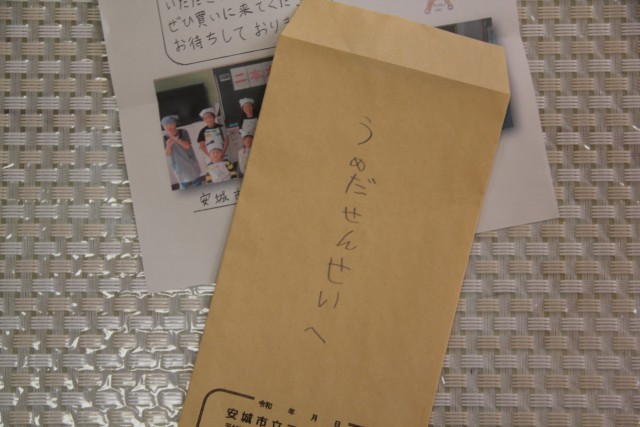 ぜひ買いに来てくだ
お待ちしており
二本
安城市
うめだせんせいへ
令和 年 月 日
安城市立二